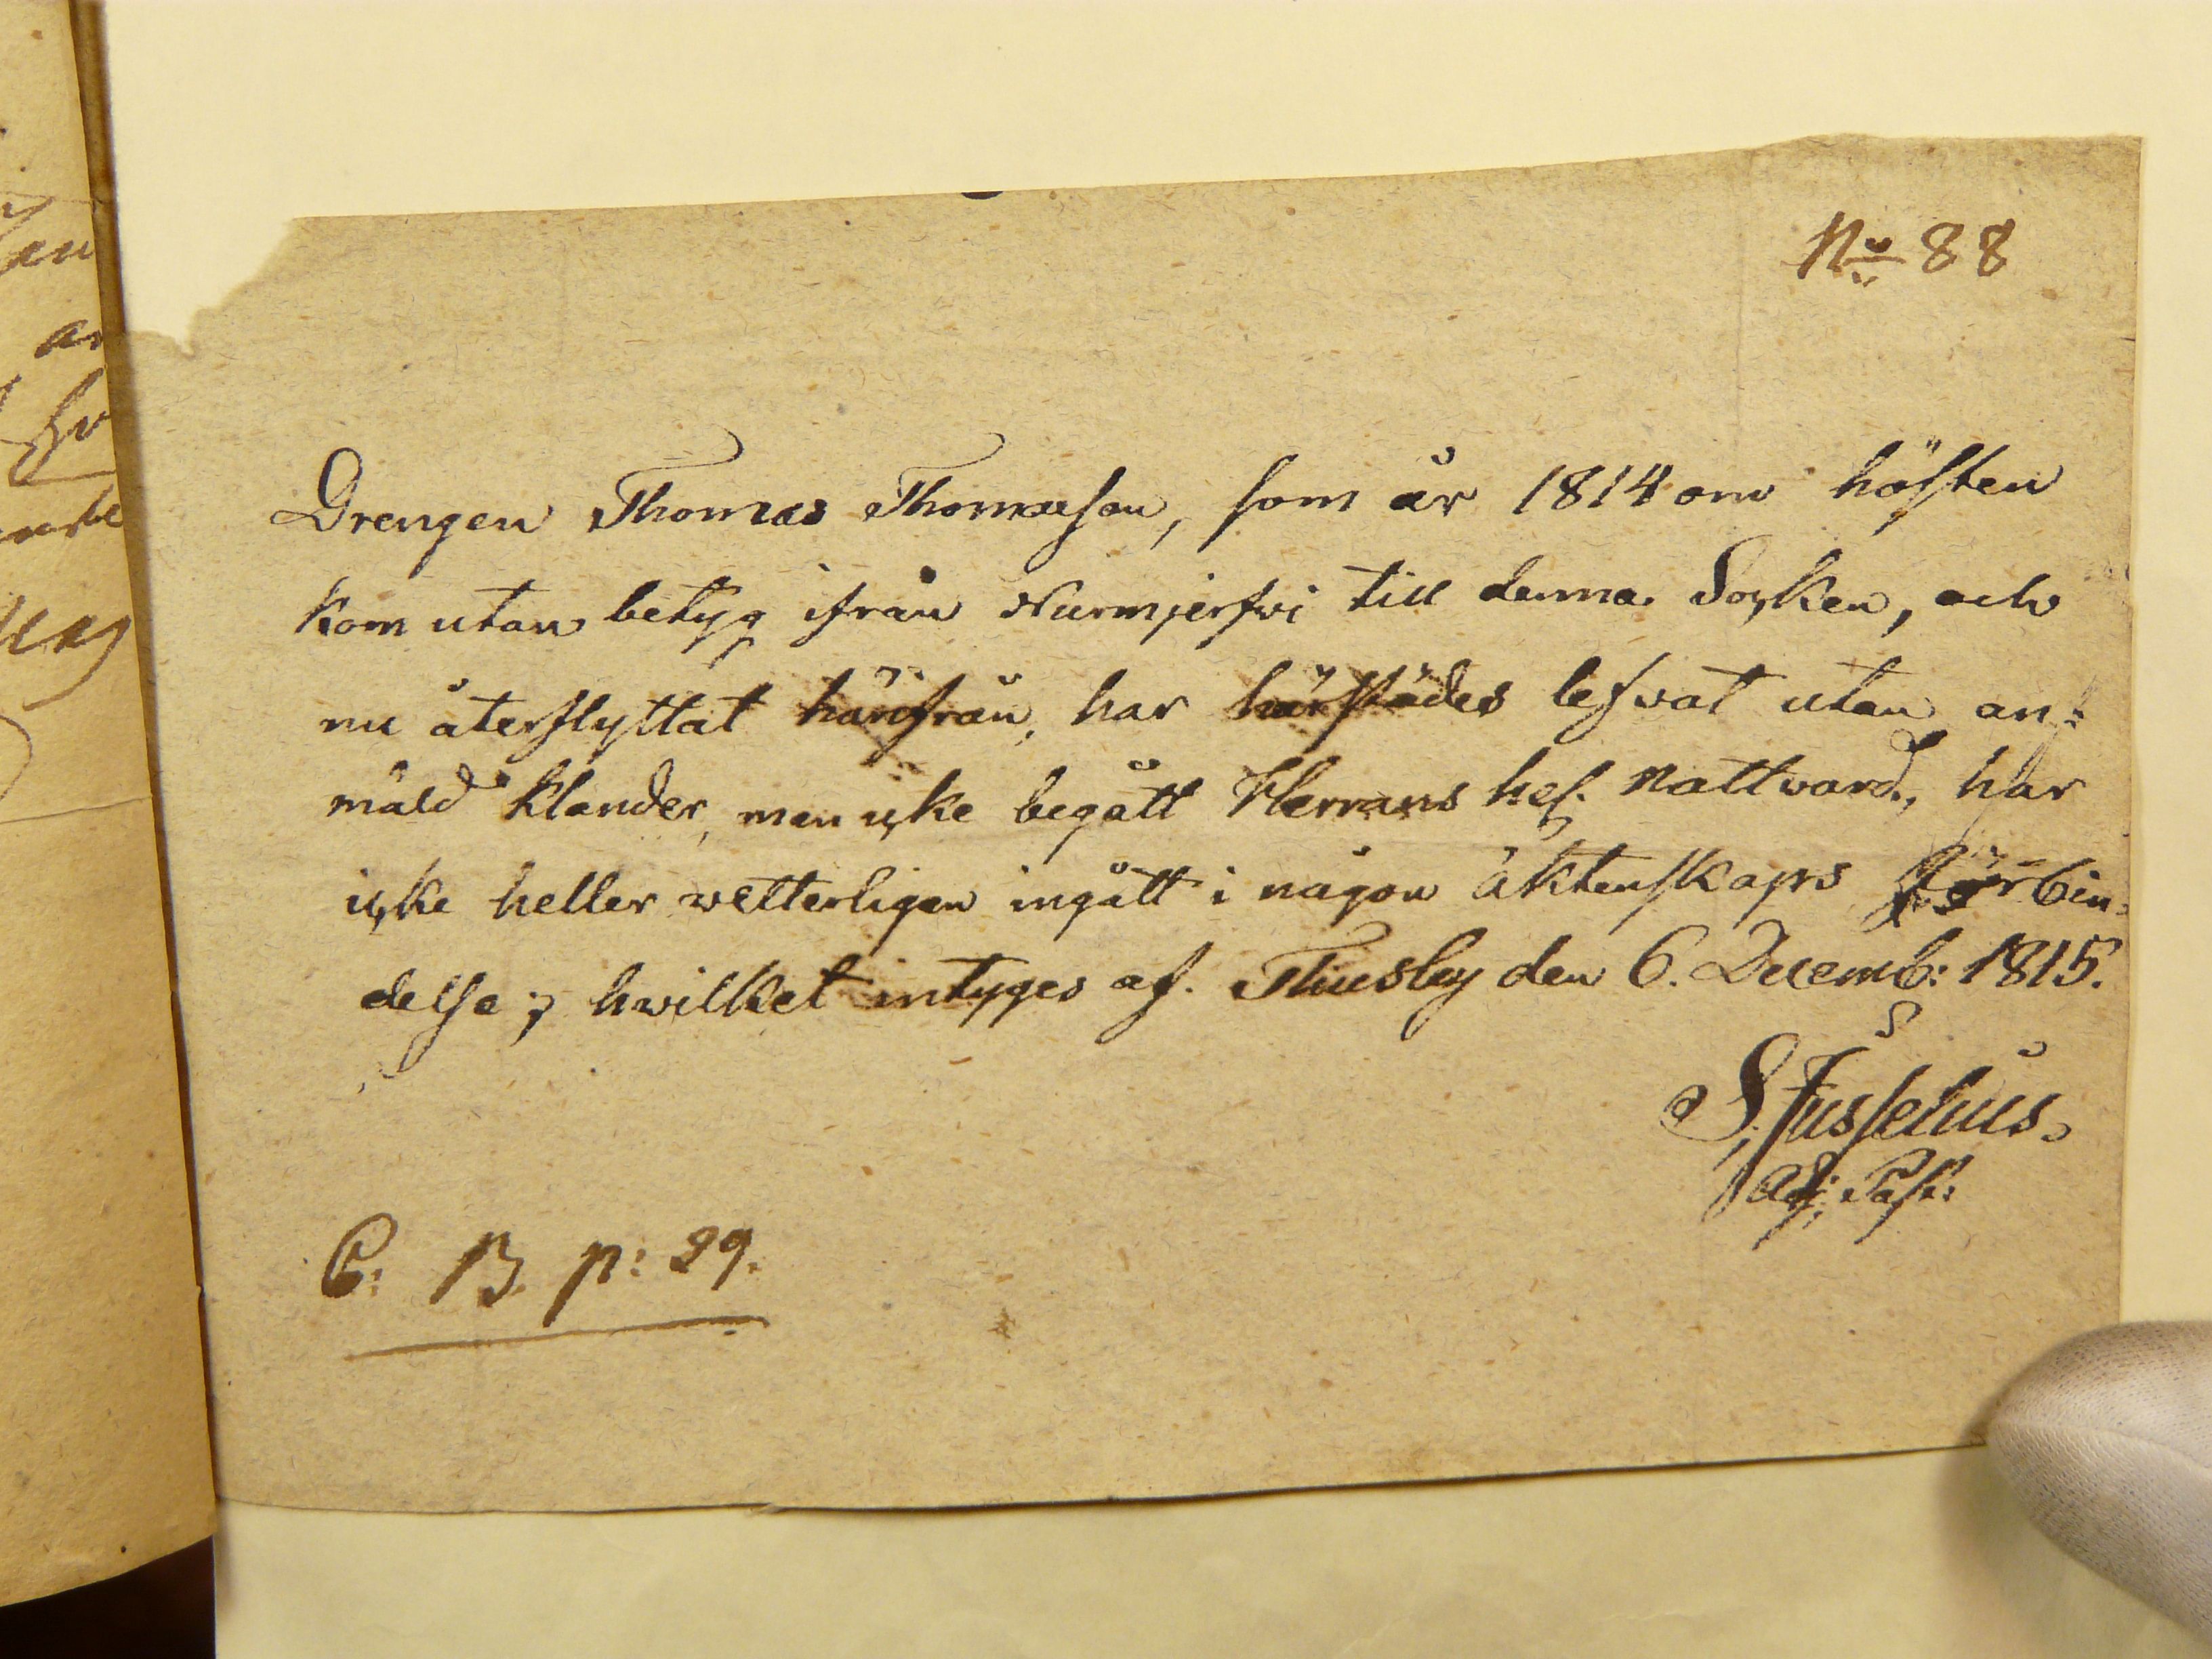 No 88
Drengen Thomas Thomasson, som år 1814 om hösten
kom utan betyg ifrån Nurmjerfvi till denna Socken, och
nu återflyttat härifrån, har härstädes lefvat utan an-
mäld klander, men icke begått Herrans hel. Nattvard, har
icke heller wetterligen ingått i någon äktenskaps förbin-
delse; hwilket intyges af. Thusby den 6. Decemb: 1815.
S. Jusselius.
Adj: Past:
C: B. p: 29.